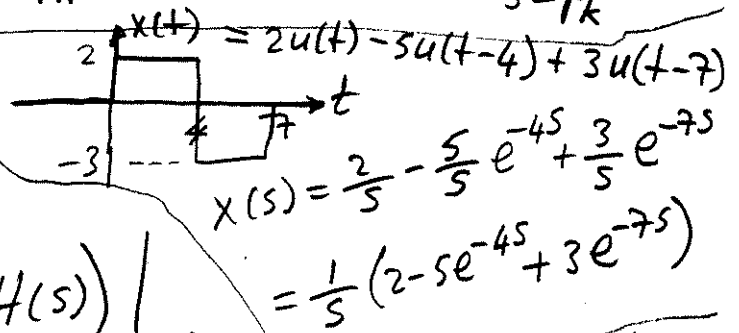 x(t) = 2u(t) - 5u(t-4) + 3u(t-7)
2
t
4
7
-3
X(s) = 2/s - 5/s e^-4s + 3/s e^-7s
H(s))
= 1/s (2 - 5e^-4s + 3e^-7s)